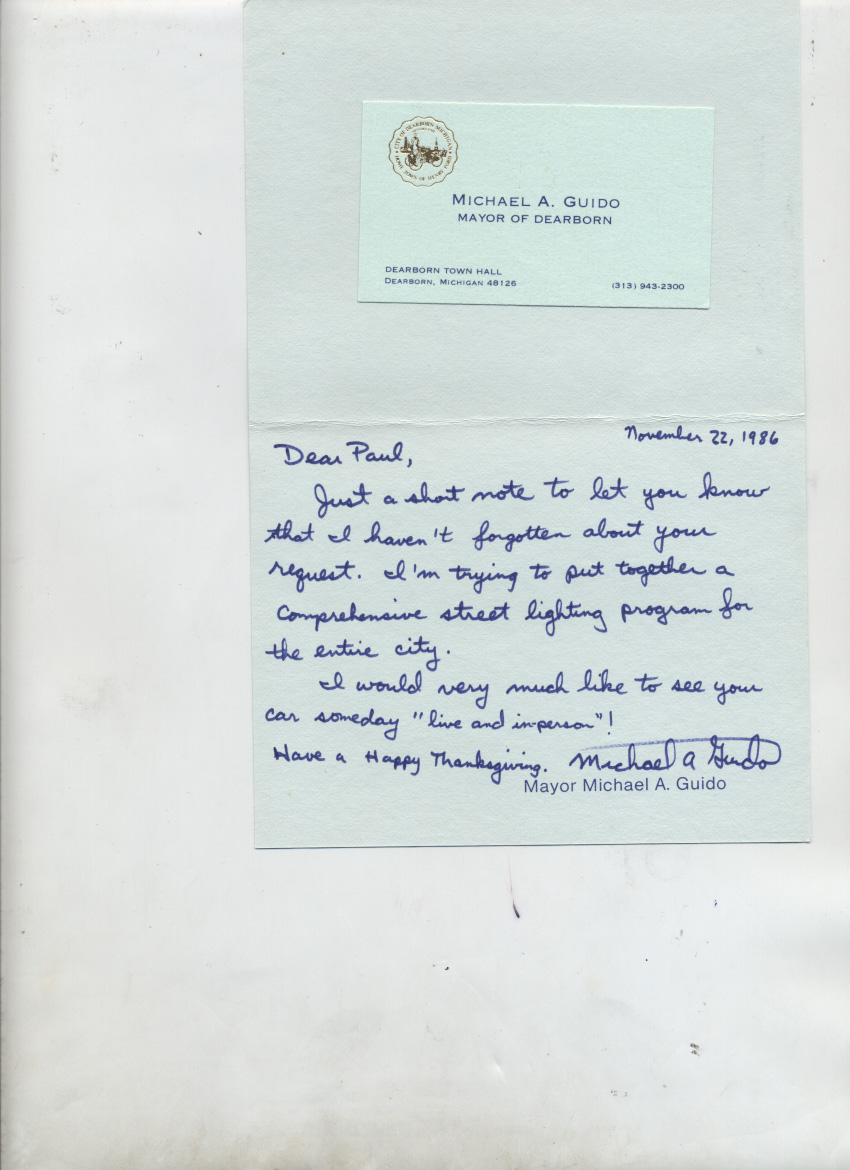 CITY OF DEARBORN MICHIGAN
HOME TOWN OF HENRY FORD
MICHAEL A. GUIDO
MAYOR OF DEARBORN
DEARBORN TOWN HALL
DEARBORN, MICHIGAN 48126
(313) 943-2300
November 22, 1986
Dear Paul,
Just a short note to let you know
that I haven't forgotten about your
request. I'm trying to put together a
comprehensive street lighting program for
the entire city.
I would very much like to see your
car someday "live and in-person"!
Have a Happy Thanksgiving. Michael A Guido
Mayor Michael A. Guido